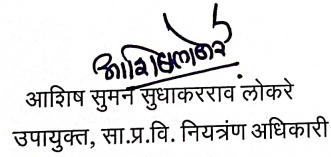 आशिषलोकरे
आशिष सुमन सुधाकरराव लोकरे
उपायुक्त, सा.प्र.वि. नियत्रंण अधिकारी